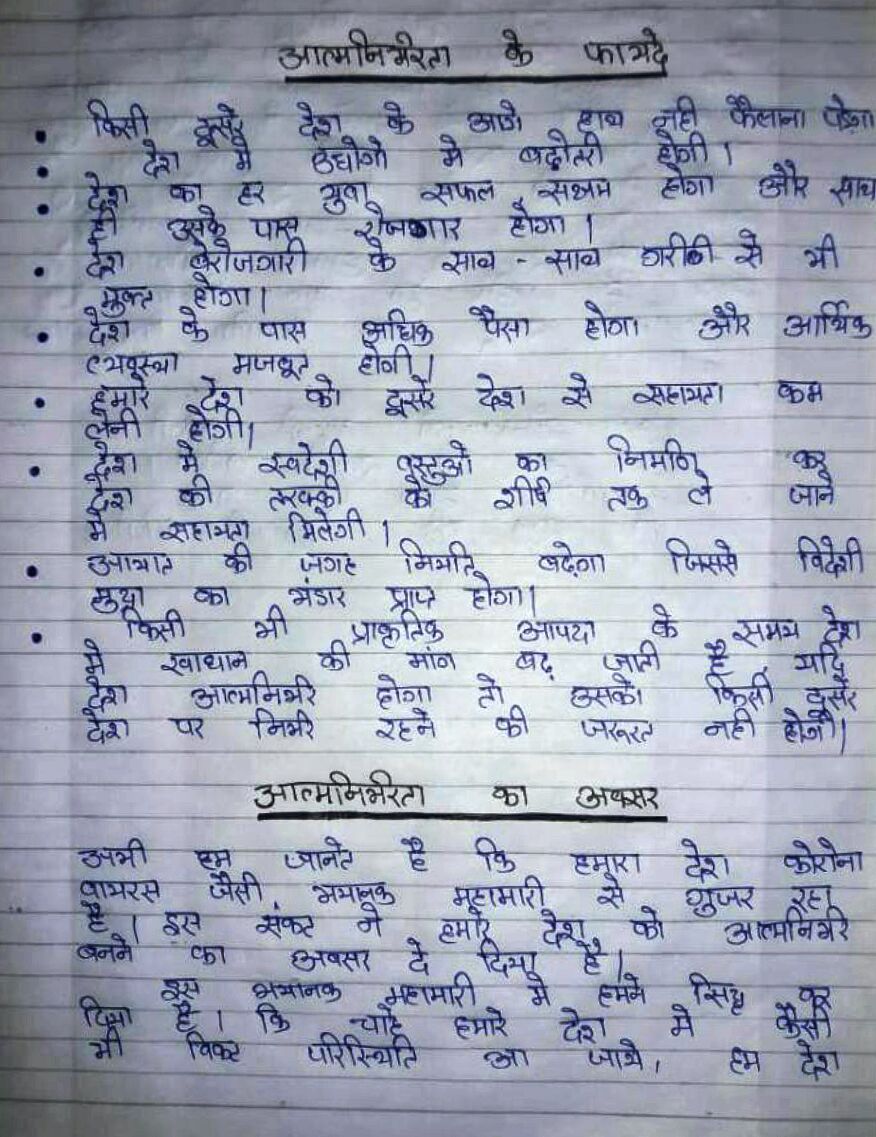 आत्मनिर्भरता के फायदे
किसी दूसरे देश के आगे हाथ नही फैलाना पडेगा
देश मे उद्योगो मे बढोतरी होगी।
देश का हर युवा सफल सक्षम होगा और साथ
ही उसके पास रोजगार होगा।
देश बेरोजगारी के साथ - साथ गरीबी से भी
मुक्त होगा।
देश के पास अधिक पैसा होगा और आर्थिक
व्यवस्था मजबूत होगी।
हमारे देश को दूसरे देश से सहायता कम
लेनी होगी।
देश मे स्वदेशी वस्तुओ का निर्माण कर
देश की तरक्की को शीर्ष तक ले जाने
मे सहायता मिलेगी।
आयात की जगह निर्यात बढेगा जिससे विदेशी
मुद्रा का भंडार प्राप्त होगा।
किसी भी प्राकृतिक आपदा के समय देश
मे खाधान की मांग बढ़ जाती है, यदि
देश आत्मनिर्भर होगा तो उसको किसी दूसरे
देश पर निर्भर रहने की जरूरत नही होगी।
आत्मनिर्भरता का अवसर
अभी हम जानते है कि हमारा देश कोरोना
वायरस जैसी भयानक महामारी से गुजर रहा
है। इस संकट ने हमारे देश को आत्मनिर्भर
बनने का अवसर दे दिया है।
इस भयानक महामारी मे हमने सिद्ध कर
दिया है। कि चाहे हमारे देश मे कैसी
भी विकट परिस्थिति आ जाये, हम देश